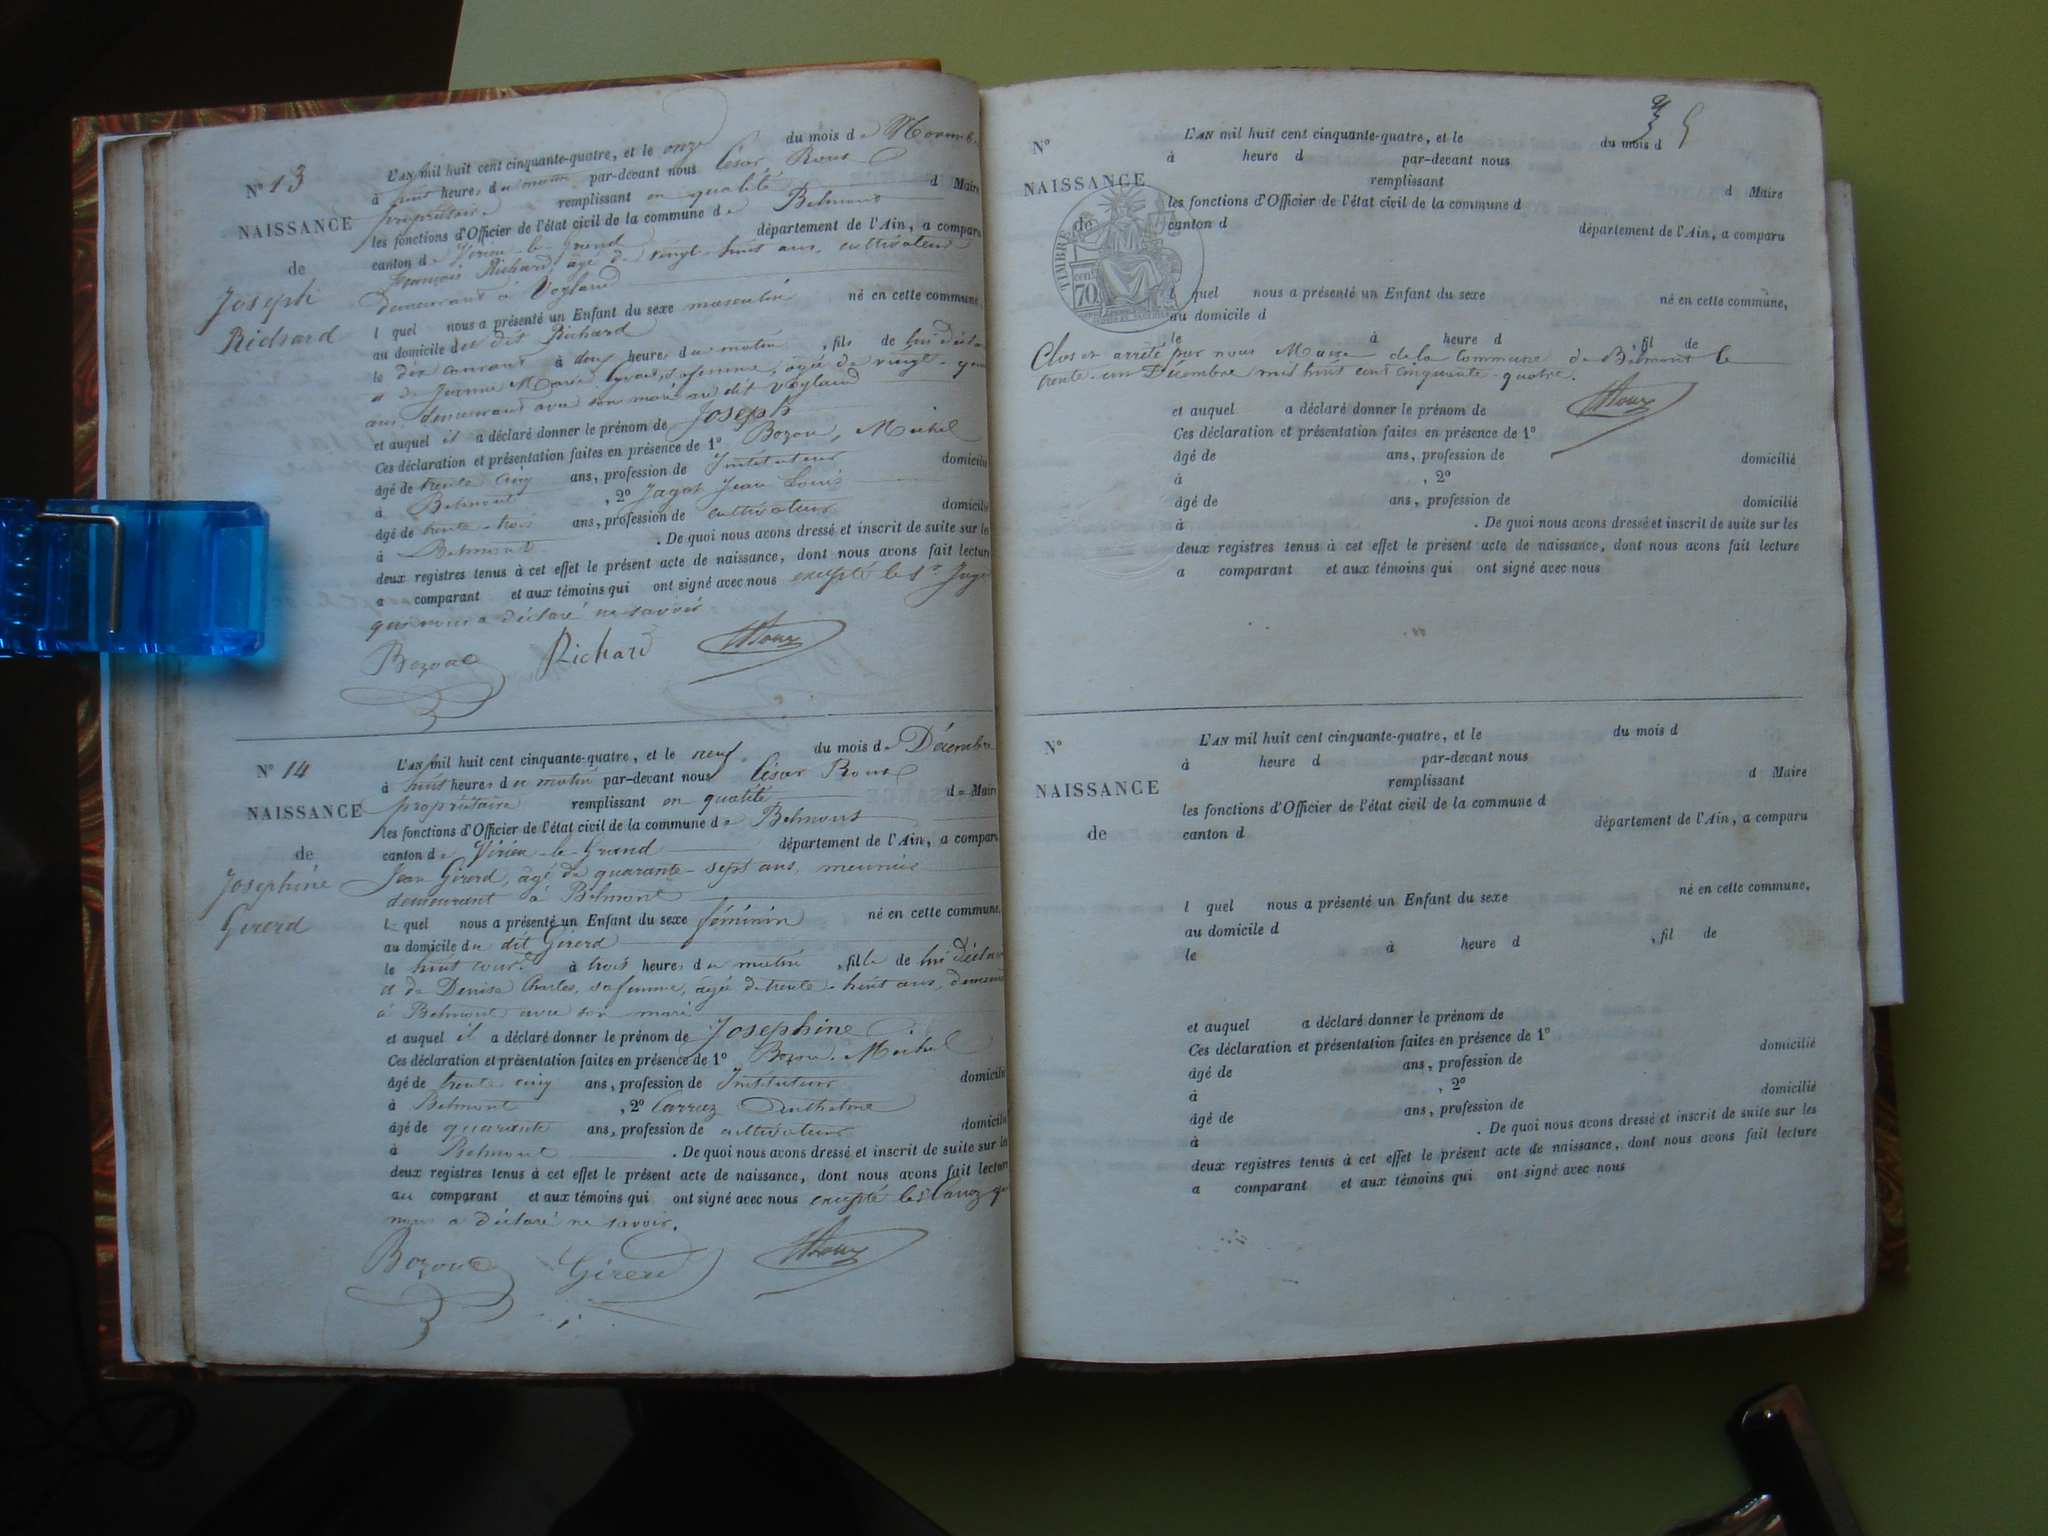 N° 13
NAISSANCE
de
Joseph
Richard
L'AN mil huit cent cinquante-quatre, et le onze du mois de Novemb.
à huit heures du matin par-devant nous César Roux
propriétaire remplissant en qualité d Maire
les fonctions d'Officier de l'état civil de la commune de Belmont
canton de Virieu-le-Grand département de l'Ain, a comparu
François Richard, âgé de vingt-huit ans, cultivateur
demeurant à Voglans
l quel nous a présenté un Enfant du sexe masculin né en cette commune,
au domicile du dit Richard
le dix courant à deux heures du matin, fils de lui déclar
et de Jeanne Marie sa femme, âgée de vingt-
ans, demeurant avec son mari au dit Voglans
et auquel il a déclaré donner le prénom de Joseph
Ces déclaration et présentation faites en présence de 1° Bozon, Michel
âgé de trente cinq ans, profession de Instituteur domicilié
à Belmont, 2° Jagot Jean Louis
âgé de trente-trois ans, profession de cultivateur domicilié
à Belmont. De quoi nous avons dressé et inscrit de suite sur les
deux registres tenus à cet effet le présent acte de naissance, dont nous avons fait lecture
a comparant et aux témoins qui ont signé avec nous excepté le Sr Jagot
qui nous a déclaré ne savoir
Bozon Richard Roux
N° 14
NAISSANCE
de
Joséphine
Girerd
L'AN mil huit cent cinquante-quatre, et le neuf du mois de Décembre
à huit heures du matin par-devant nous César Roux
propriétaire remplissant en qualité de Maire
les fonctions d'Officier de l'état civil de la commune de Belmont
canton de Virieu-le-Grand département de l'Ain, a comparu
Jean Girerd, âgé de quarante-sept ans, meunier
demeurant à Belmont
le quel nous a présenté un Enfant du sexe féminin né en cette commune,
au domicile du dit Girerd
le huit cour.t à trois heures du matin, fille de lui déclar
et de Denise Charles, sa femme, âgée de trente-huit ans, demeurt
à Belmont avec son mari
et auquel il a déclaré donner le prénom de Josephine
Ces déclaration et présentation faites en présence de 1° Bozon, Michel
âgé de trente cinq ans, profession de Instituteur domicilié
à Belmont, 2° Carraz Anthelme
âgé de quarante ans, profession de cultivateur domicilié
à Belmont. De quoi nous avons dressé et inscrit de suite sur les
deux registres tenus à cet effet le présent acte de naissance, dont nous avons fait lecture
au comparant et aux témoins qui ont signé avec nous excepté le Sr Carraz qui
nous a déclaré ne savoir.
Bozon Girerd Roux
5
N°
NAISSANCE
de
TIMBRE
70
L'AN mil huit cent cinquante-quatre, et le du mois d
à heure d par-devant nous
remplissant d Maire
les fonctions d'Officier de l'état civil de la commune d
canton d département de l'Ain, a comparu
l quel nous a présenté un Enfant du sexe né en cette commune,
au domicile d
le à heure d, fil de
Clos et arrêté par nous Maire de la Commune de Belmont le
trente-un Décembre mil huit cent cinquante-quatre.
Roux
et auquel a déclaré donner le prénom de
Ces déclaration et présentation faites en présence de 1°
âgé de ans, profession de domicilié
à, 2°
âgé de ans, profession de domicilié
à. De quoi nous avons dressé et inscrit de suite sur les
deux registres tenus à cet effet le présent acte de naissance, dont nous avons fait lecture
a comparant et aux témoins qui ont signé avec nous
N°
NAISSANCE
de
L'AN mil huit cent cinquante-quatre, et le du mois d
à heure d par-devant nous
remplissant d Maire
les fonctions d'Officier de l'état civil de la commune d
canton d département de l'Ain, a comparu
l quel nous a présenté un Enfant du sexe né en cette commune,
au domicile d
le à heure d, fil de
et auquel a déclaré donner le prénom de
Ces déclaration et présentation faites en présence de 1°
âgé de ans, profession de domicilié
à, 2°
âgé de ans, profession de domicilié
à. De quoi nous avons dressé et inscrit de suite sur les
deux registres tenus à cet effet le présent acte de naissance, dont nous avons fait lecture
a comparant et aux témoins qui ont signé avec nous